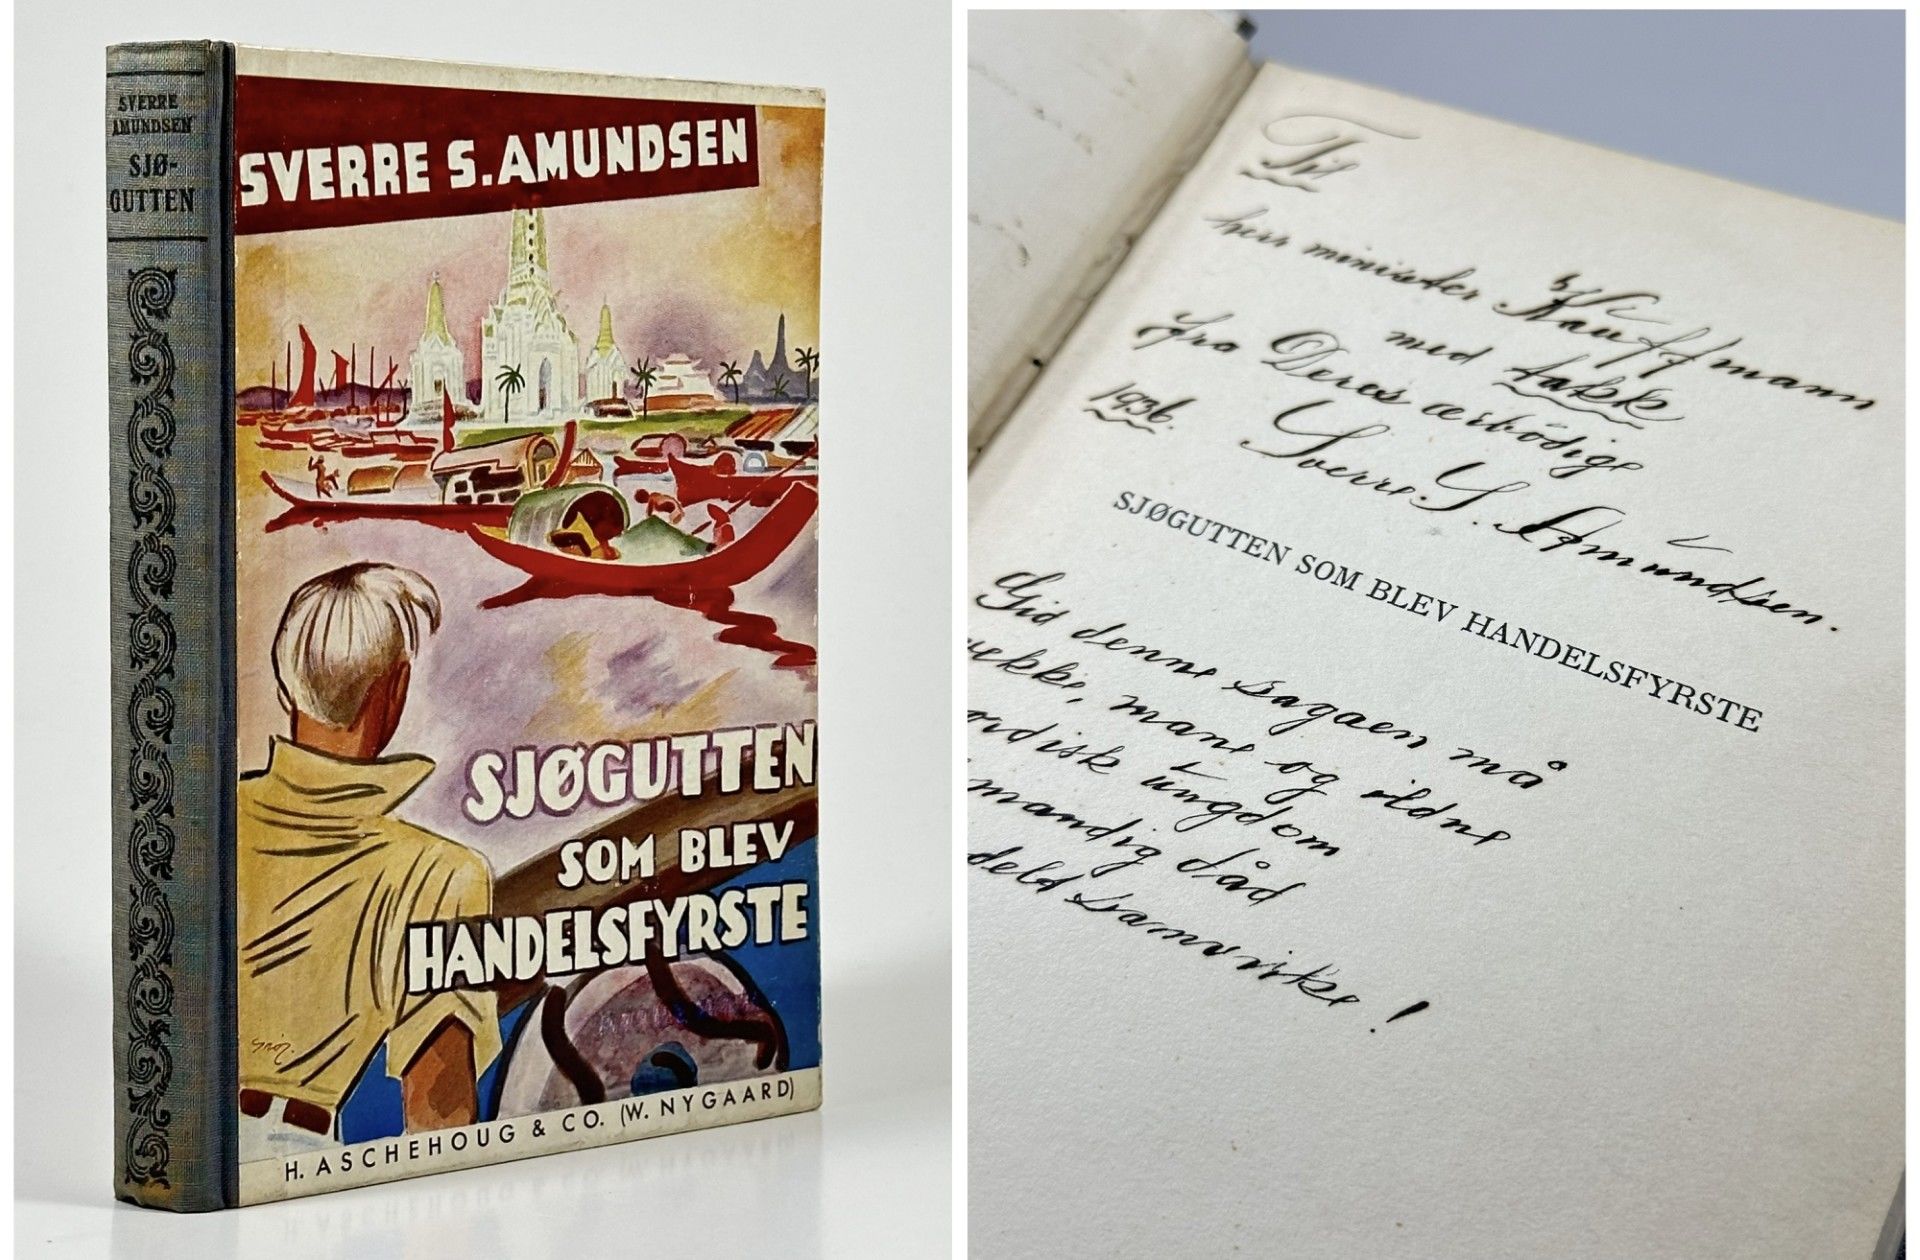 SVERRE
AMUNDSEN
SJØ-
GUTTEN
SVERRE S. AMUNDSEN
SJØGUTTEN
SOM BLEV
HANDELSFYRSTE
H. ASCHEHOUG & CO. (W. NYGAARD)
Til
herr minister Kauffmann
med takk
fra Deres ærbødige
1936. Sverre S. Amundsen.
SJØGUTTEN SOM BLEV HANDELSFYRSTE
Gid denne sagaen må
vekke, mane og ildne
ordisk ungdom
mandig dåd
samvirke!